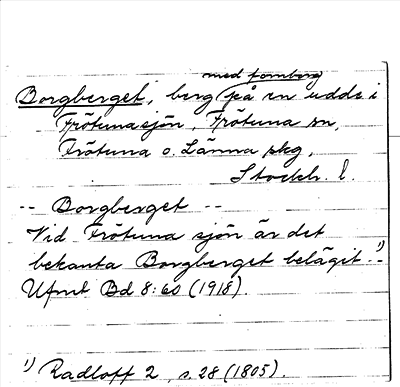 med fornborg
Borgberget, berg på en udde i
Frötunasjön, Frötuna sn,
Frötuna o. Länna skg,
Stockh. l.
-- Borgberget --
Vid Frötuna sjön är det
bekanta Borgberget belägit.- 1)
Ufmt Bd 8:60 (1918).
1) Radloff 2, s. 28 (1805).